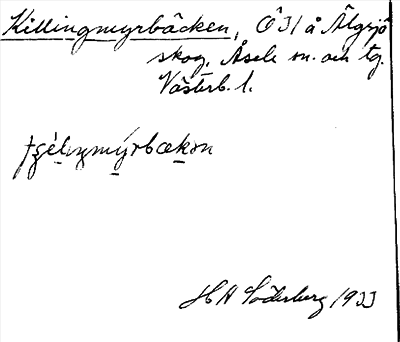 Killingmyrbäcken, Ö31 å Älgsjö
skog, Åsele sn. och tg.
Västerb. l.
H A Söderberg 1933